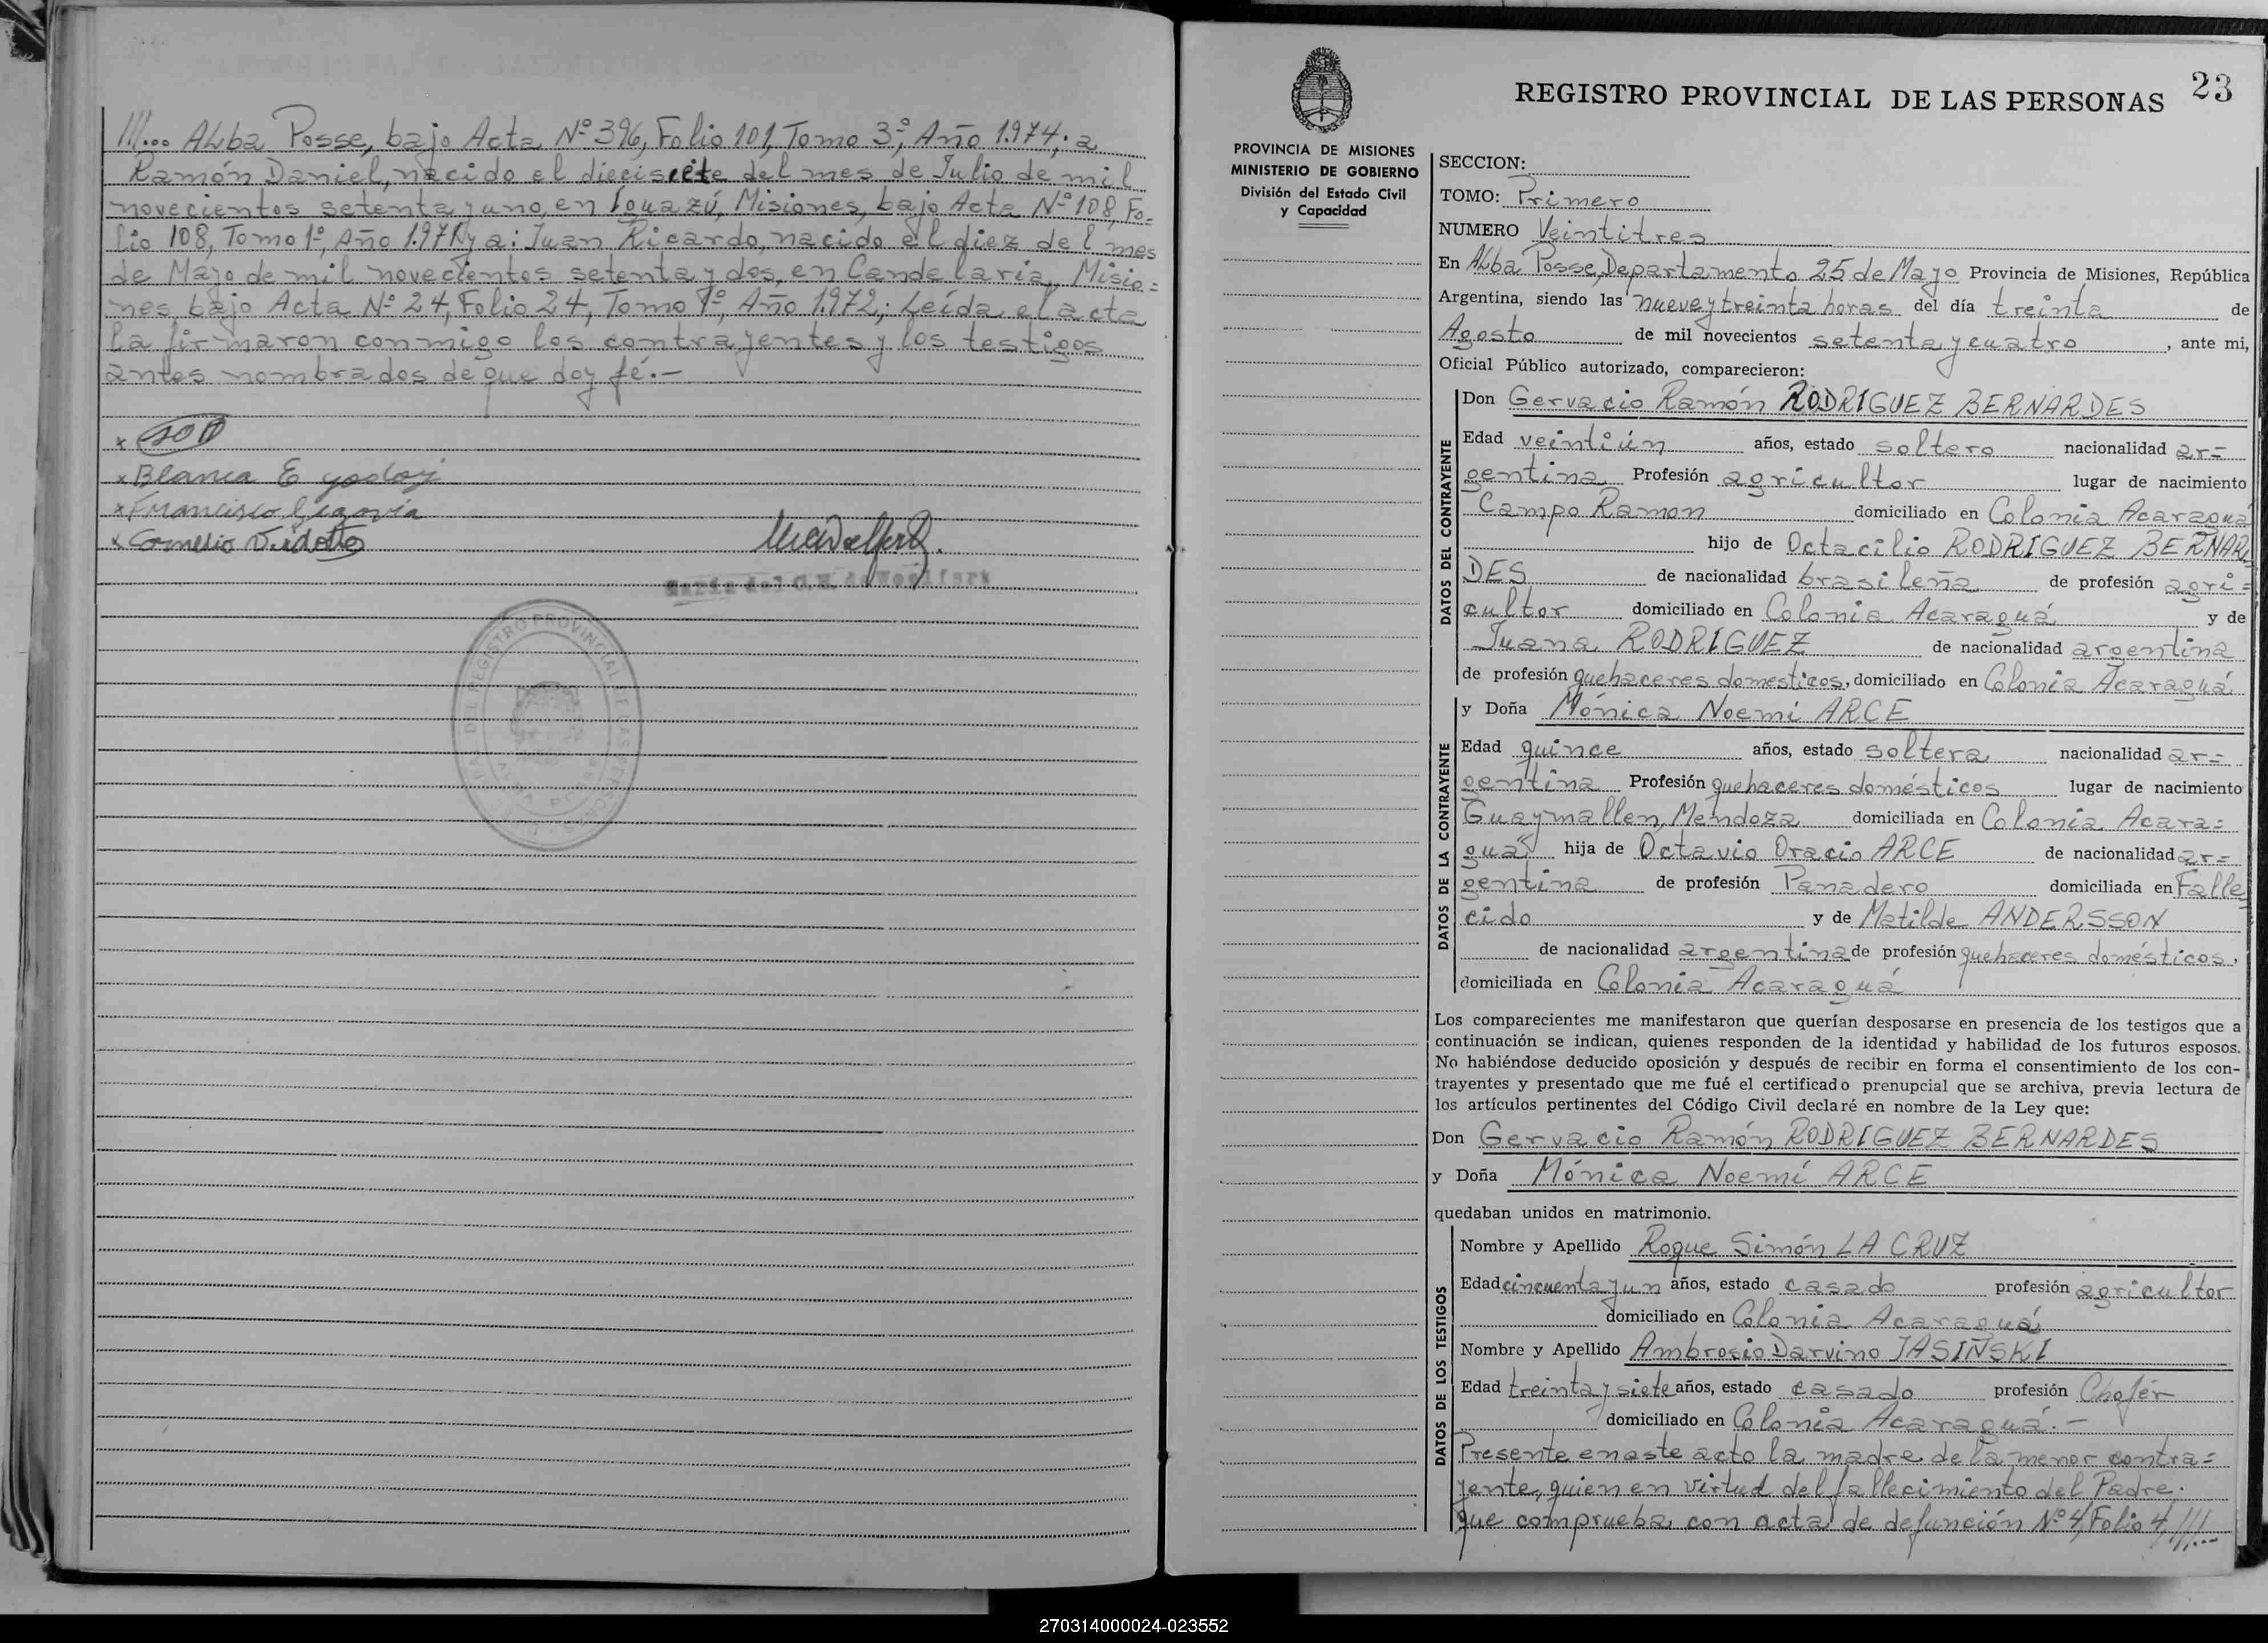 ///... Alba Posse, bajo Acta Nº 396, Folio 101, Tomo 3º, Año 1.974; a
Ramón Daniel, nacido el diecisiete del mes de Julio de mil
novecientos setenta y uno, en Iguazú, Misiones, bajo Acta Nº 108, Fo=
lio 108, Tomo 1º, Año 1.971 y a: Juan Ricardo, nacido el diez del mes
de Mayo de mil novecientos setenta y dos, en Candelaria, Misio=
nes, bajo Acta Nº 24, Folio 24, Tomo 1º, Año 1.972; Leída el acta
la firmaron conmigo los contrayentes y los testigos
antes nombrados de que doy fé.-
x
x Blanca E Godoy
x Francisco Segovia
x Cornelio
DEL REGISTRO PROVINCIAL DE LAS PERSONAS
23
REGISTRO PROVINCIAL DE LAS PERSONAS
PROVINCIA DE MISIONES
MINISTERIO DE GOBIERNO
División del Estado Civil
y Capacidad
SECCION:
TOMO: Primero
NUMERO Veintitres
En Alba Posse, Departamento 25 de Mayo Provincia de Misiones, República
Argentina, siendo las nueve y treinta horas del día treinta de
Agosto de mil novecientos setenta y cuatro, ante mi,
Oficial Público autorizado, comparecieron:
DATOS DEL CONTRAYENTE
Don Gervacio Ramón RODRIGUEZ BERNARDES
Edad veintiún años, estado soltero nacionalidad ar=
gentina Profesión agricultor lugar de nacimiento
Campo Ramon domiciliado en Colonia Acaraguá
hijo de Octacilio RODRIGUEZ BERNAR
DES de nacionalidad brasileña de profesión agri=
cultor domiciliado en Colonia Acaraguá y de
Juana RODRIGUEZ de nacionalidad argentina
de profesión quehaceres domesticos, domiciliado en Colonia Acaraguá
DATOS DE LA CONTRAYENTE
y Doña Mónica Noemí ARCE
Edad quince años, estado soltera nacionalidad ar=
gentina Profesión quehaceres domésticos lugar de nacimiento
Guaymallen, Mendoza domiciliada en Colonia Acara=
guá hija de Octavio Oracio ARCE de nacionalidad ar=
gentina de profesión Panadero domiciliada en Falle
cido y de Matilde ANDERSSON
de nacionalidad argentina de profesión quehaceres domésticos,
domiciliada en Colonia Acaraguá
Los comparecientes me manifestaron que querían desposarse en presencia de los testigos que a
continuación se indican, quienes responden de la identidad y habilidad de los futuros esposos.
No habiéndose deducido oposición y después de recibir en forma el consentimiento de los con-
trayentes y presentado que me fué el certificado prenupcial que se archiva, previa lectura de
los artículos pertinentes del Código Civil declaré en nombre de la Ley que:
Don Gervacio Ramón RODRIGUEZ BERNARDES
y Doña Mónica Noemí ARCE
quedaban unidos en matrimonio.
DATOS DE LOS TESTIGOS
Nombre y Apellido Roque Simón LA CRUZ
Edad cincuenta y un años, estado casado profesión agricultor
domiciliado en Colonia Acaraguá
Nombre y Apellido Ambrosio Darvino JASIÑSKI
Edad treinta y siete años, estado casado profesión Chofér
domiciliado en Colonia Acaraguá.-
Presente en este acto la madre de la menor contra=
yente, quien en virtud del fallecimiento del Padre,
que comprueba con acta de defunción Nº 4, Folio 4 ///...
270314000024-023552